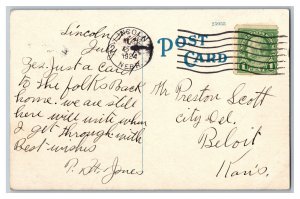 Lincoln
Jul
Yes. Just a Card
to the folks Back
home. we are still
here will write when
I get through with
Best-wishes
P. D. H. Jones
LINCOLN
1924
NEBR.
POST
CARD
Mr Preston Scott
City Del.
Beloit
Kans.